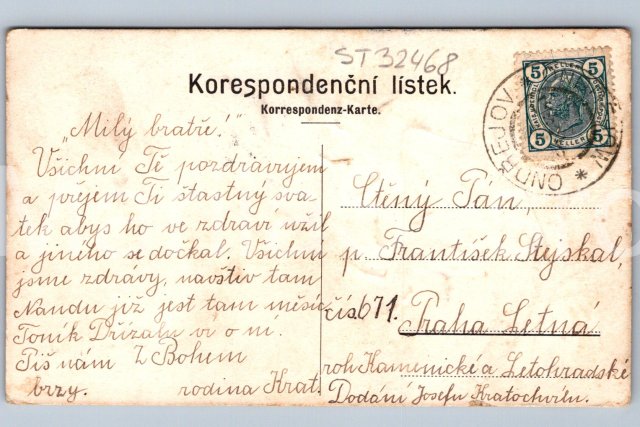 ST32468
Korespondenční lístek.
Korrespondenz-Karte.
5 5
HELLER
5 5
ONDŘEJOV
„Milý bratře!"
Všichni Tě pozdravujem
a přejem Ti stastný sva-
tek abys ho ve zdraví užil
a jiného se dočkal. Všichni
jsme zdrávy, navštiv tam
Nandu již jest tam měsíc
Toník
Piš nám Z Bohem
brzy. rodina Krat.
Ctěný Pán,
p. František Stejskal,
čís. 671.
Praha Letná
roh Kamenické a Letohradské
Dodání Josefu Kratochvílu.